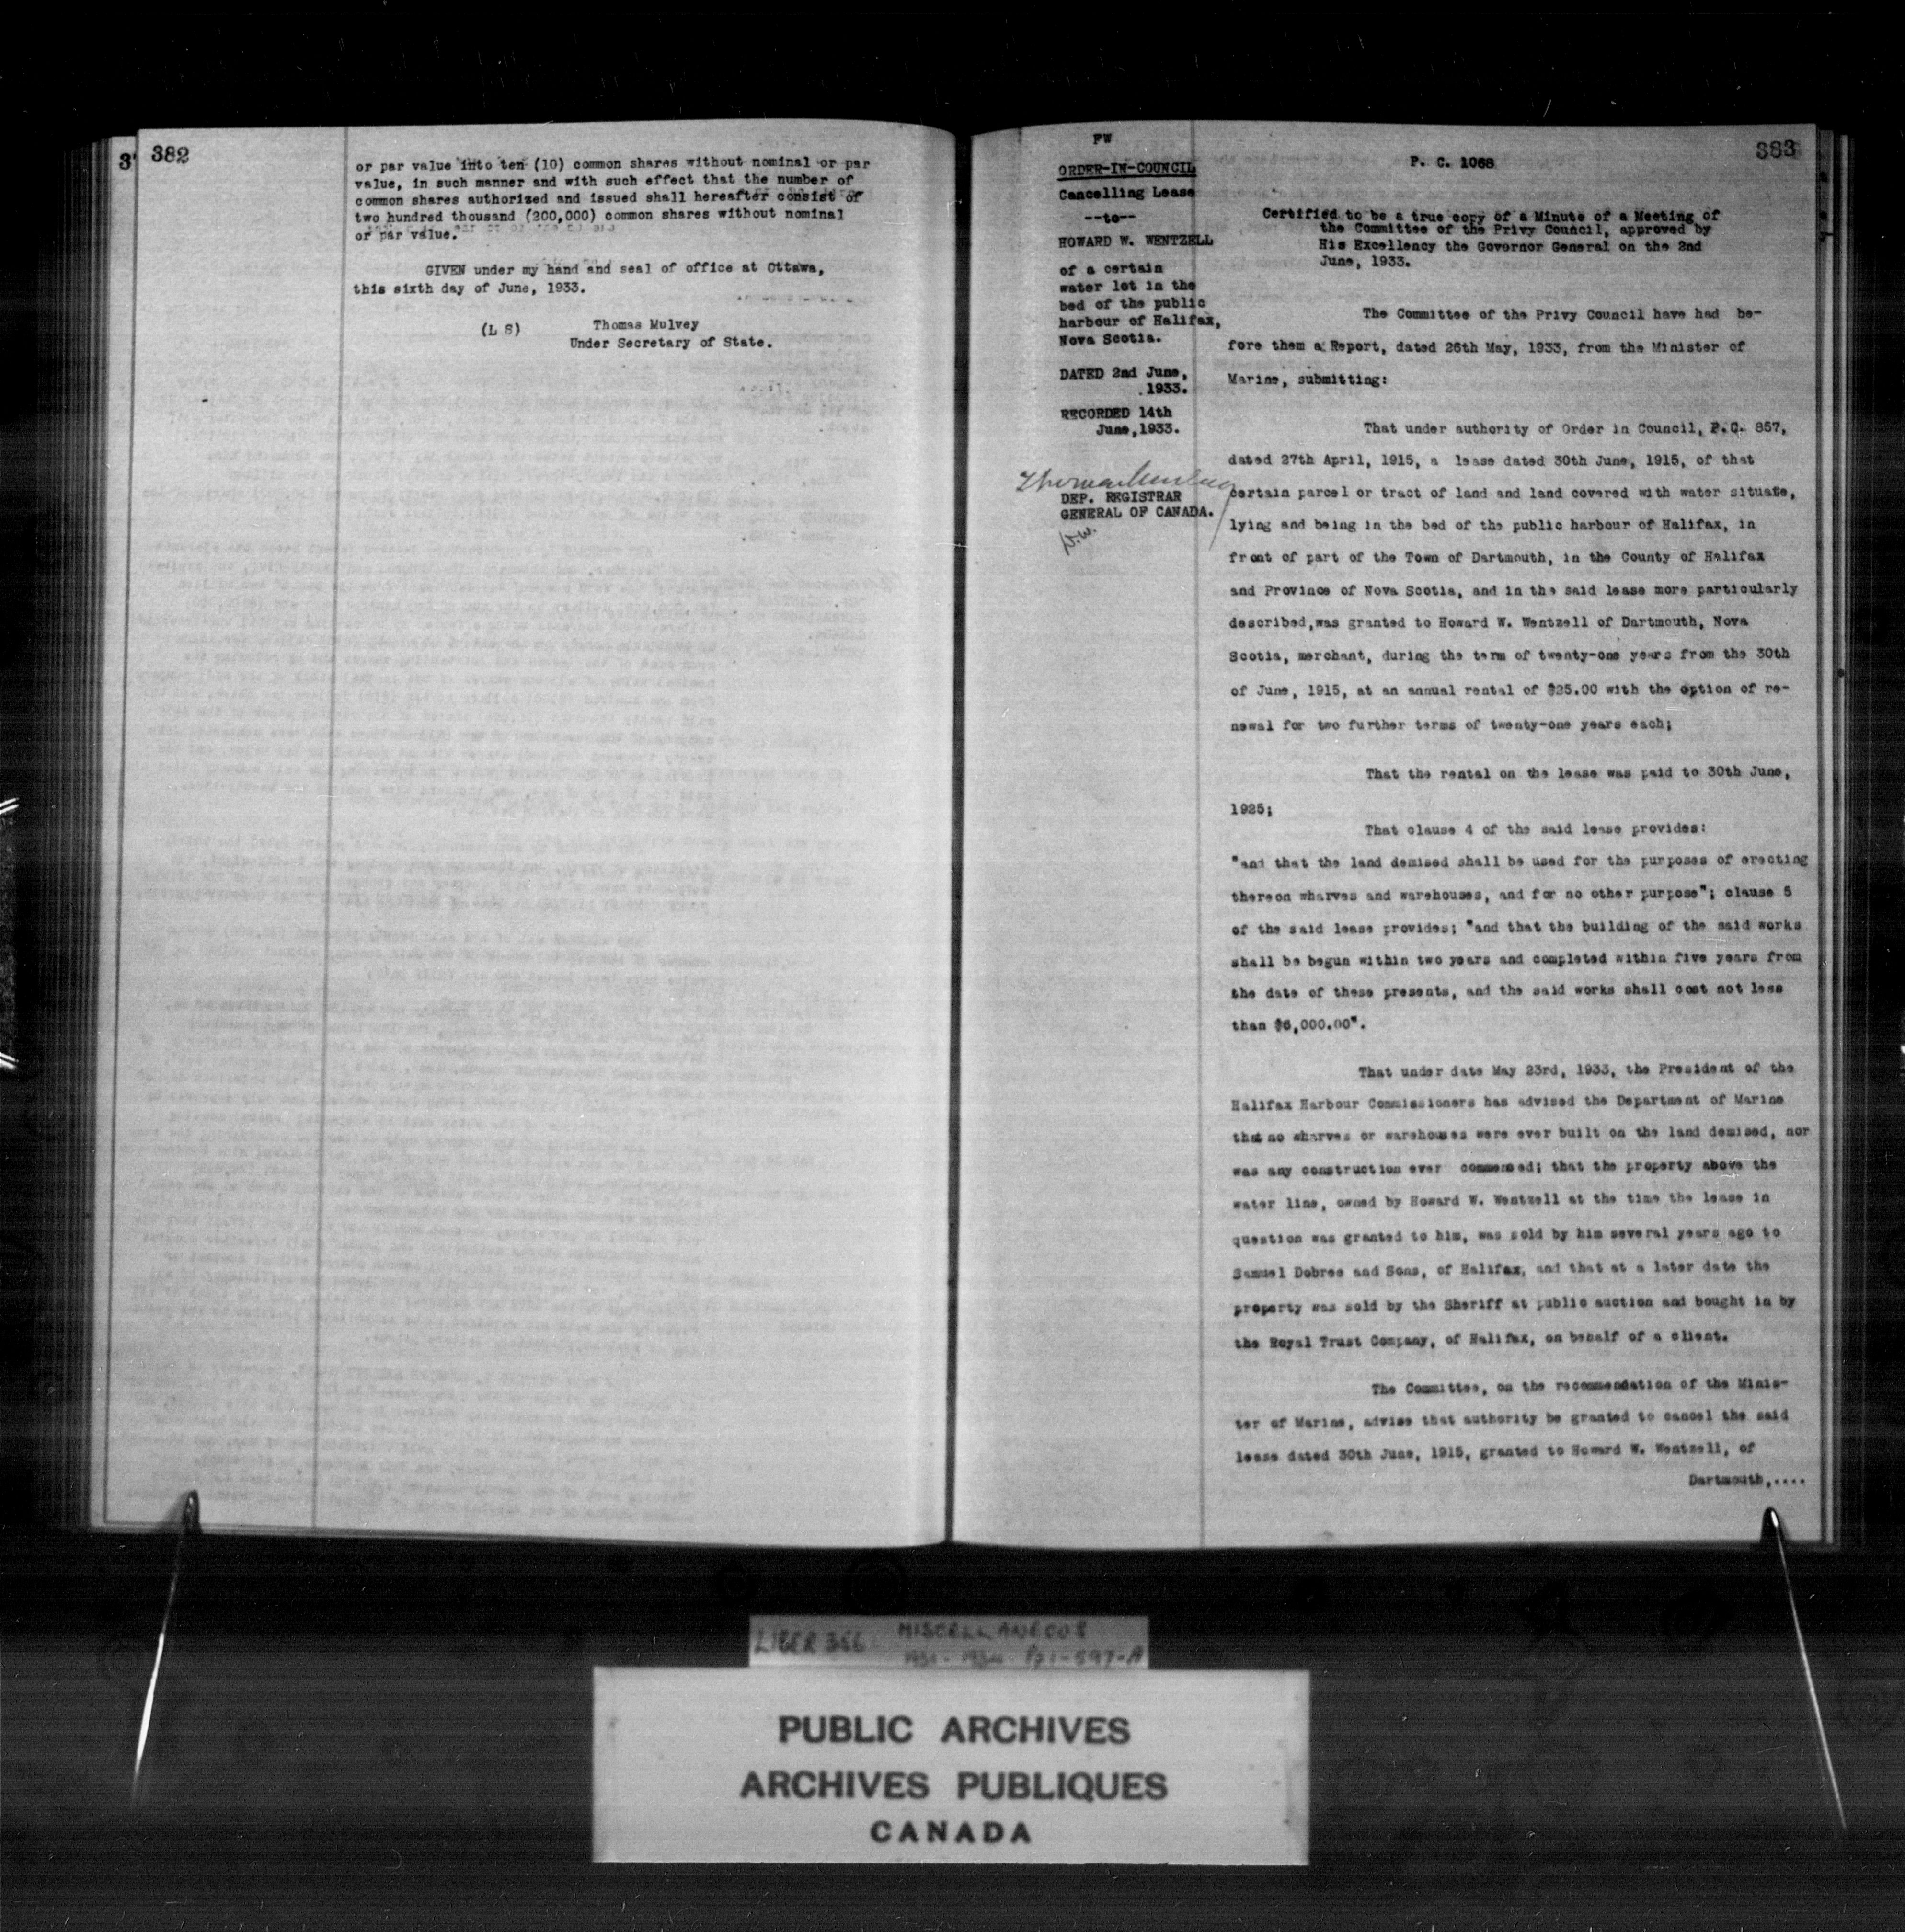 382
or par value into ten (10) common shares without nominal or par
value, in such manner and with such effect that the number of
common shares authorized and issued shall hereafter consist of
two hundred thousand (200,000) common shares without nominal
or par value.
GIVEN under my hand and seal of office at Ottawa,
this sixth day of June, 1933.
(L S) Thomas Mulvey
Under Secretary of State.
383
FW
ORDER-IN-COUNCIL
Cancelling Lease
--to--
HOWARD W. WENTZELL
of a certain
water lot in the
bed of the public
harbour of Halifax,
Nova Scotia.
DATED 2nd June,
1933.
RECORDED 14th
June,1933.
DEP. REGISTRAR
GENERAL OF CANADA.
P. C. 1068
Certified to be a true copy of a Minute of a Meeting of
the Committee of the Privy Council, approved by
His Excellency the Governor General on the 2nd
June, 1933.
The Committee of the Privy Council have had be-
fore them a Report, dated 26th May, 1933, from the Minister of
Marine, submitting:
That under authority of Order in Council, P.C. 857,
dated 27th April, 1915, a lease dated 30th June, 1915, of that
certain parcel or tract of land and land covered with water situate,
lying and being in the bed of the public harbour of Halifax, in
front of part of the Town of Dartmouth, in the County of Halifax
and Province of Nova Scotia, and in the said lease more particularly
described,was granted to Howard W. Wentzell of Dartmouth, Nova
Scotia, merchant, during the term of twenty-one years from the 30th
of June, 1915, at an annual rental of $25.00 with the option of re-
newal for two further terms of twenty-one years each;
That the rental on the lease was paid to 30th June,
1925;
That clause 4 of the said lease provides:
"and that the land demised shall be used for the purposes of erecting
thereon wharves and warehouses, and for no other purpose"; clause 5
of the said lease provides; "and that the building of the said works
shall be begun within two years and completed within five years from
the date of these presents, and the said works shall cost not less
than $6,000.00".
That under date May 23rd, 1933, the President of the
Halifax Harbour Commissioners has advised the Department of Marine
that no wharves or warehouses were ever built on the land demised, nor
was any construction ever commenced; that the property above the
water line, owned by Howard W. Wentzell at the time the lease in
question was granted to him, was sold by him several years ago to
Samuel Dobree and Sons, of Halifax, and that at a later date the
property was sold by the Sheriff at public auction and bought in by
the Royal Trust Company, of Halifax, on behalf of a client.
The Committee, on the recommendation of the Minis-
ter of Marine, advise that authority be granted to cancel the said
lease dated 30th June, 1915, granted to Howard W. Wentzell, of
Dartmouth,....
LIBER 356 MISCELLANEOUS
1931-1934 Pp1-597-A
PUBLIC ARCHIVES
ARCHIVES PUBLIQUES
CANADA